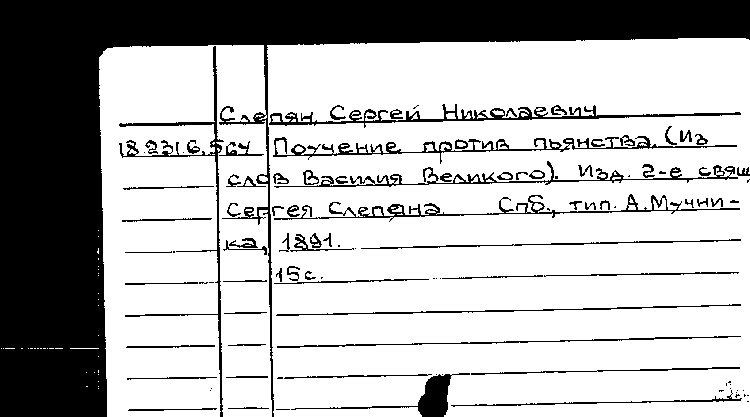 Слепян, Сергей Николаевич
18.231.6.564 Поучение против пьянства. (Из
слов Василия Великого). Изд. 2-е, свящ
Сергея Слепяна. Спб., тип. А. Мучни-
ка, 1891.
15 с.